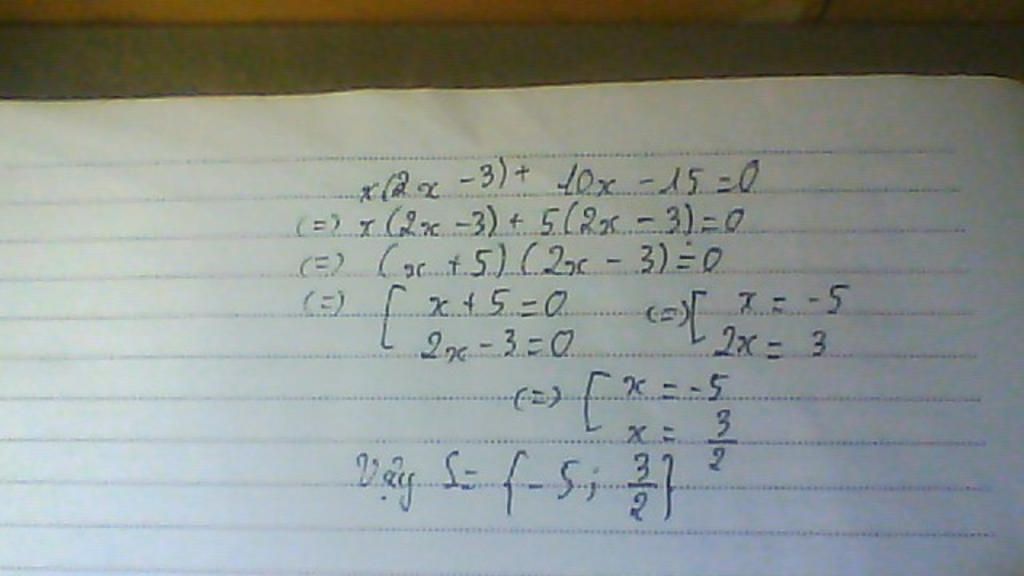 x(2x - 3) + 10x - 15 = 0
(=) x(2x - 3) + 5(2x - 3) = 0
(=) (x + 5)(2x - 3) = 0
(=) [ x + 5 = 0 (=) [ x = -5
2x - 3 = 0 2x = 3
(=) [ x = -5
x = 3/2
Vậy S = { -5; 3/2 }